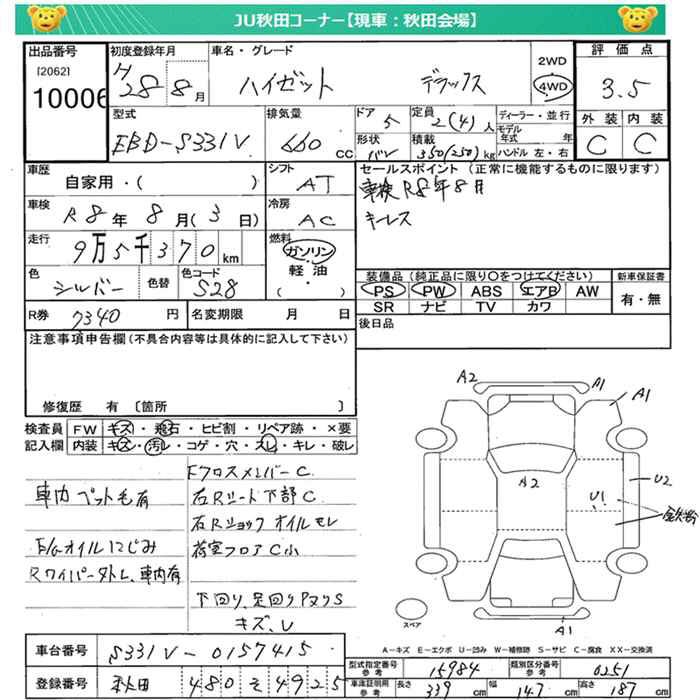 JU秋田コーナー【現車：秋田会場】
出品番号
[2062]
10006
初度登録年月
H28 8月
車名・グレード
ハイゼット デラックス
2WD
4WD
評価点
3.5
型式
EBD-S331V
排気量
660 cc
ドア
5
形状
バン
定員
2(4)人
積載
350(250)kg
ディーラー・並行
モデル年式 年
ハンドル 左・右
外装 内装
C C
車歴
自家用・( )
シフト
AT
車検
R8年8月(3日)
冷房
AC
走行
9万5千370km
燃料
ガソリン
軽油
( )
色
シルバー
色替
色コード
S28
R券
7340円
名変期限 月 日
セールスポイント(正常に機能するものに限ります)
車検R8年8月
キーレス
装備品(純正品に限り〇をつけてください)
PS PW ABS エアB AW
SR ナビ TV カワ
新車保証書
有・無
後日品
注意事項申告欄(不具合内容等は具体的に記入して下さい)
修復歴 有 〔箇所 〕
検査員記入欄
FW キズ・飛石・ヒビ割・リペア跡・×要
内装 キズ・汚レ・コゲ・穴・スレ・キレ・破レ
車内ペット毛有
E/Gオイルにじみ
Rワイパー欠トレ、車内有
FクロスメンバーC
右Rシート下部C
右Rショックオイルモレ
荷室フロアC小
下回り、足回りPヌリS
キズ、U
A2
A1
A1
A2
U2
U1
鉄粉
A1
スペア
A-キズ E-エクボ U-凹み W-補修跡 S-サビ C-腐食 XX-交換済
車台番号
S331V-0157415
登録番号
秋田 480 そ 4925
型式指定番号 参考
15984
類別区分番号 参考
0251
車庫証明用 参考
長さ 339 cm
幅 147 cm
高さ 187 cm